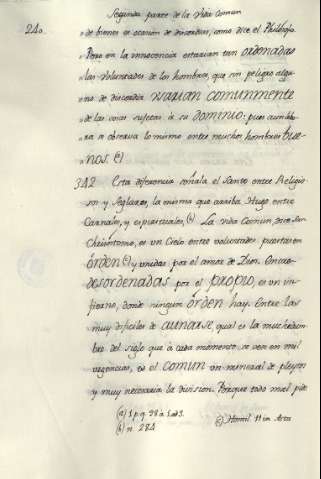 Segunda parte de la Vida Comun
240.
» de bienes es ocasion de discordias, como dice el Philosofo.
» Pero en la innocencia estavan tan ordenadas
» las voluntades de los hombres, que sin peligro algu-
» no de discordia usarian comunmente
» de las cosas sujetas à su dominio; pues aun aho-
» ra se observa lo mismo entre muchos hombres bue-
» nos. (a)
342 Esta diferencia señala el Santo entre Religio-
sos y Seglares, la misma que arriba Hugo entre
Carnales, y espirituales. (b) La vida Comun, dice San
Chrisóstomo, es un Cielo entre voluntades puestas en
órden (c) y unidas por el amor de Dios. Entre
desordenadas por el propio, es un in-
fierno, donde ningun órden hay. Entre las
muy dificiles de aunarse, qual es la muchedum-
bre del siglo que à cada momento se ven en mil
urgencias, es el comun un mineral de pleytos
y muy necesaria la division. Porque todo
(a) 1. p. q. 98 à 1. ad 3.
(b) n. 284
(c) Homil. 11 in Actor